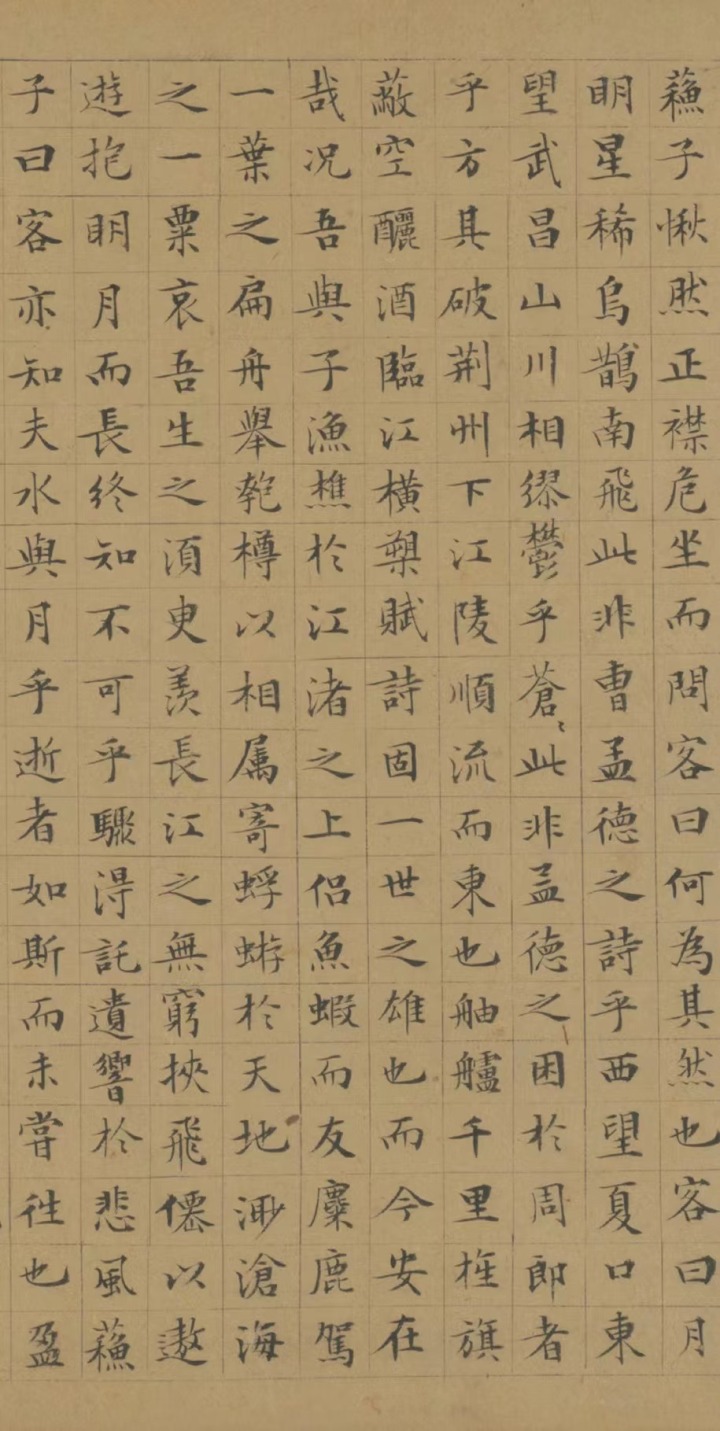 蘓子愀然正襟危坐而問客曰何為其然也客曰月
明星稀烏鵲南飛此非曹孟德之詩乎西望夏口東
望武昌山川相繆鬱乎蒼〻此非孟德之困於周郎者
乎方其破荆州下江陵順流而東也舳艫千里旌旗
蔽空釃酒臨江橫槊賦詩固一世之雄也而今安在
哉况吾與子漁樵於江渚之上侣魚蝦而友麋鹿駕
一葉之扁舟舉匏樽以相属寄蜉蝣於天地渺滄海
之一粟哀吾生之湏臾羡長江之無窮挾飛僊以遨
遊抱明月而長終知不可乎驟得託遺響於悲風蘓
子曰客亦知夫水與月乎逝者如斯而未嘗徃也盈